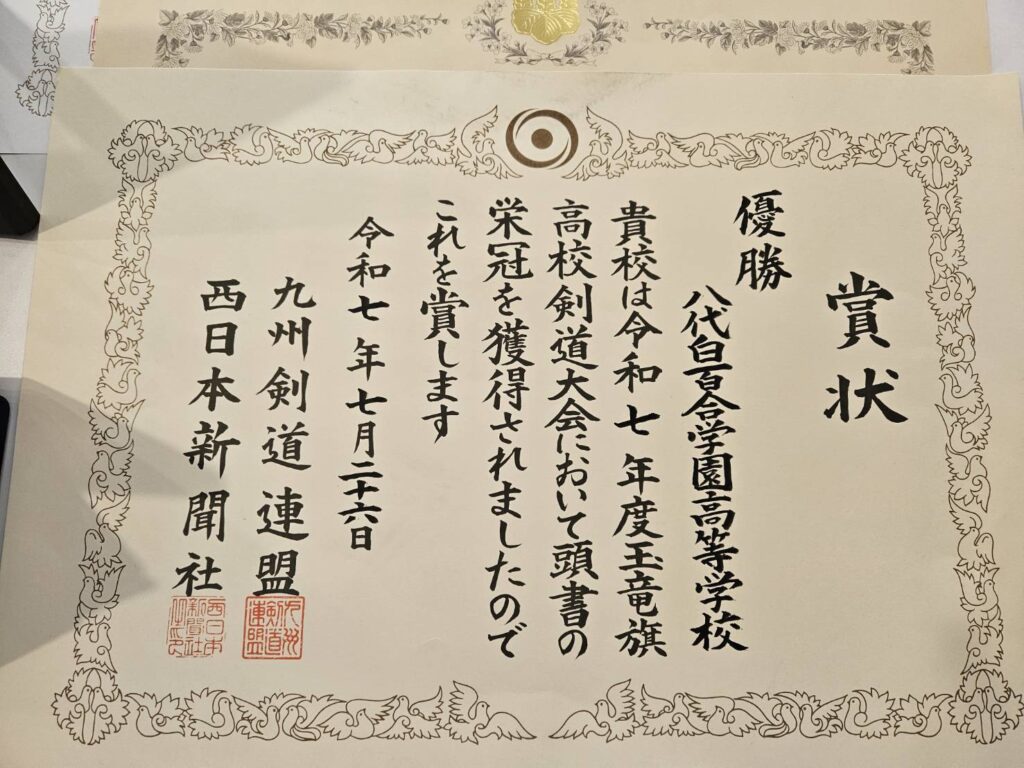 賞状
優勝
八代白百合学園高等学校
貴校は令和七年度玉竜旗
高校剣道大会において頭書の
栄冠を獲得されましたので
これを賞します
令和七年七月二十六日
九州剣道連盟
九州剣道連盟
西日本新聞社
西日本新聞社